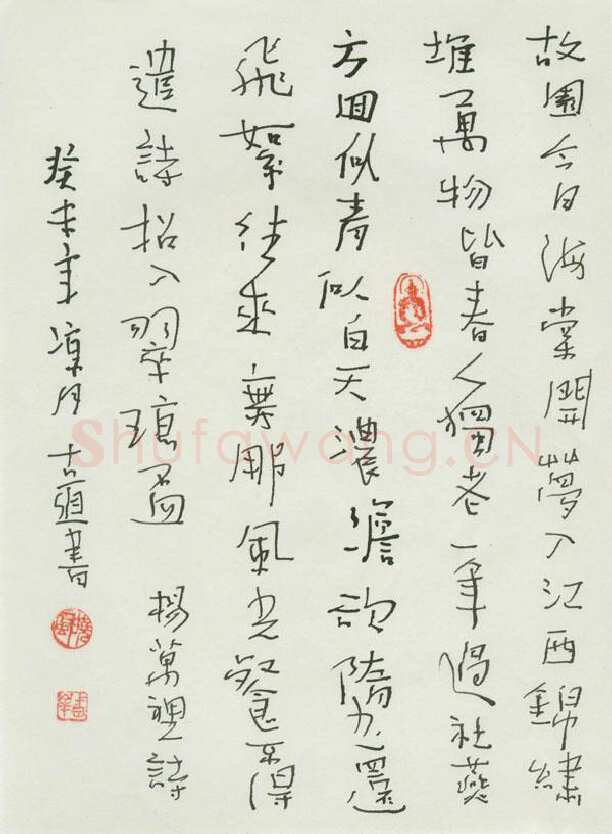 故園今日海棠開夢入江西錦繡
堆萬物皆春人獨老一年過社燕
方回似青似白天濃澹欲墮還
飛絮往來無那風光餐不得
遣詩招入翠瓊盃 楊萬裡詩
癸未年涼月古書
Shufawang.CN